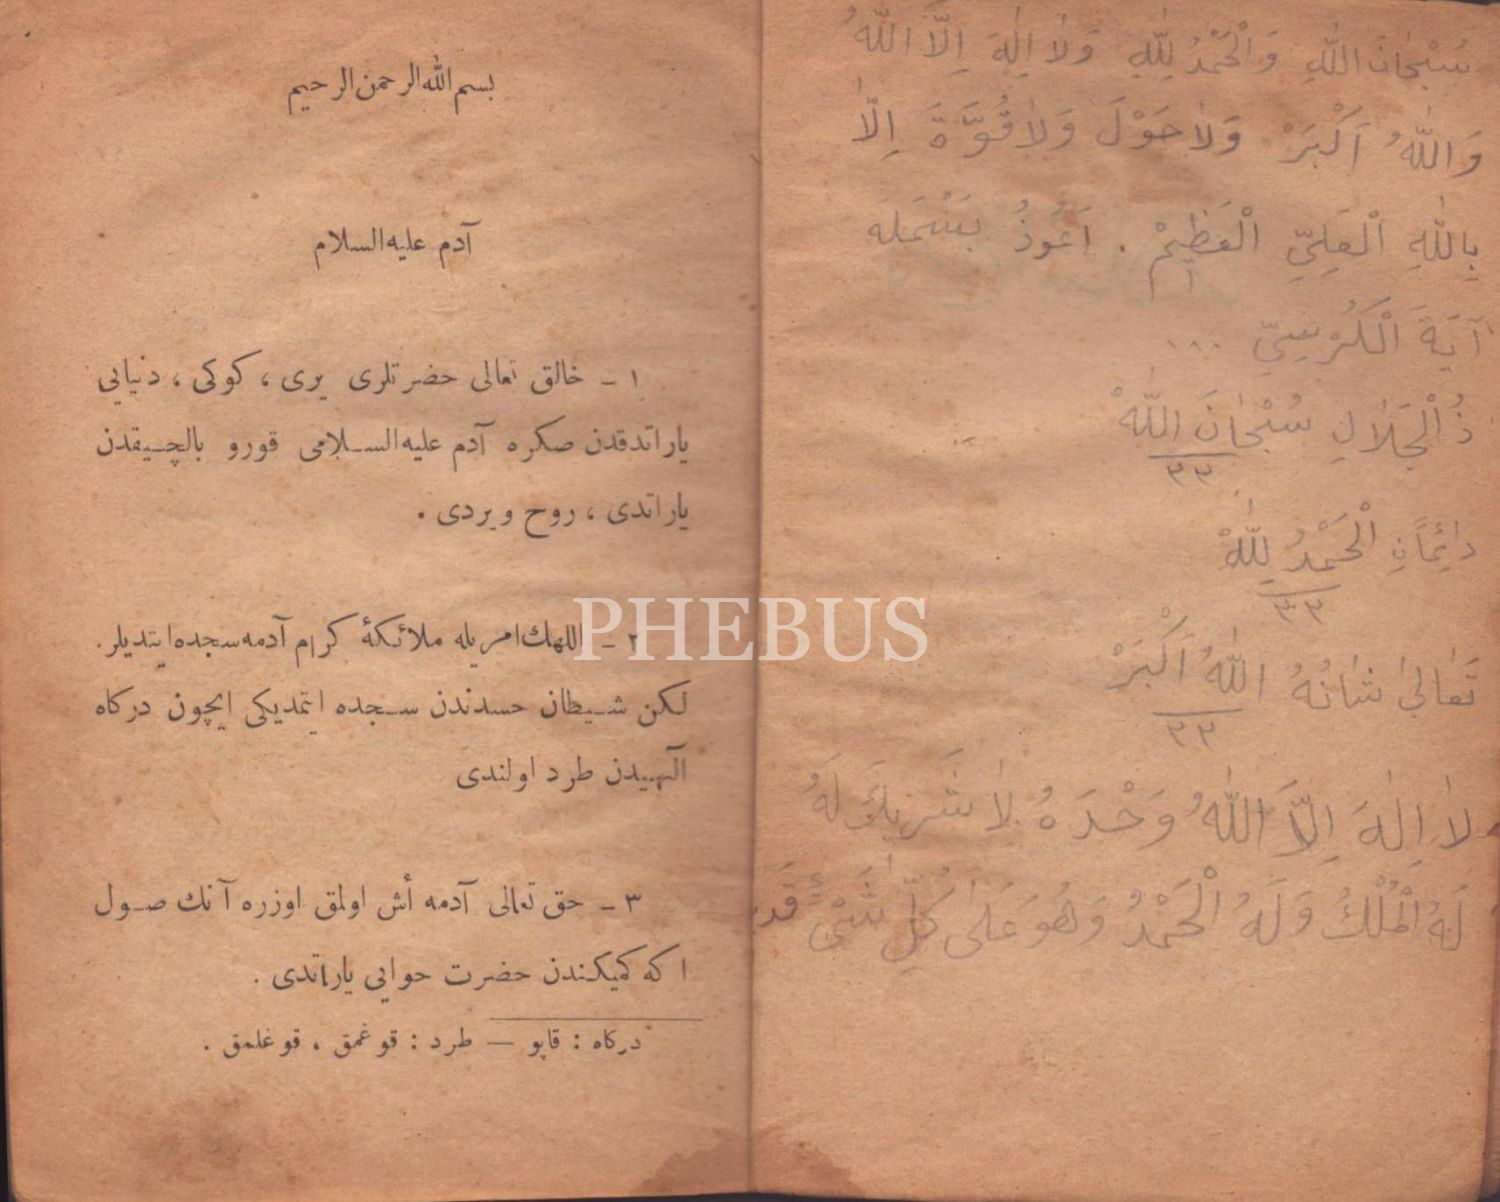 سُبْحَانَ اللّٰهِ وَالْحَمْدُ لِلّٰهِ وَلَا اِلٰهَ اِلَّا اللّٰهُ
وَاللّٰهُ اَكْبَرْ وَلَا حَوْلَ وَلَا قُوَّةَ اِلَّا
بِاللّٰهِ الْعَلِيِّ الْعَظِيمْ . اَعُوذُ بَسْمَلَه
آيَةَ الْكُرْسِيّ ...
ذُالْجَلَالِ سُبْحَانَ اللّٰهْ
٣٣
دَائِمًاً الْحَمْدُ لِلّٰهْ
٣٣
تَعَالىٰ شَانُهُ اللّٰهُ اَكْبَرْ
٣٣
لَا اِلٰهَ اِلَّا اللّٰهُ وَحْدَهُ لَا شَرِيكَ لَهُ
لَهُ الْمُلْكُ وَلَهُ الْحَمْدُ وَهُوَ عَلىٰ كُلِّ شَيْءٍ
بسم الله الرحمن الرحيم
آدم عليه السلام
١ – خالق تعالى حضرتلرى يرى ، كوكى ، دنيايى
ياراتدقدن صكره آدم عليه السلامى قورو بالچيقدن
ياراتدى ، روح ويردى .
٢ – اللهك امريله ملائكۀ كرام آدمه سجده ايتديلر .
لكن شيطان حسدندن سجده ايتمديكى ايچون دركاه
آلهيدن طرد اولندى
٣ – حق تعالى آدمه أش اولمق اوزره آنك صول
اكه كميكندن حضرت حوايى ياراتدى .
دركاه : قاپو — طرد : قوغمق ، قوغلمق .
PHEBUS